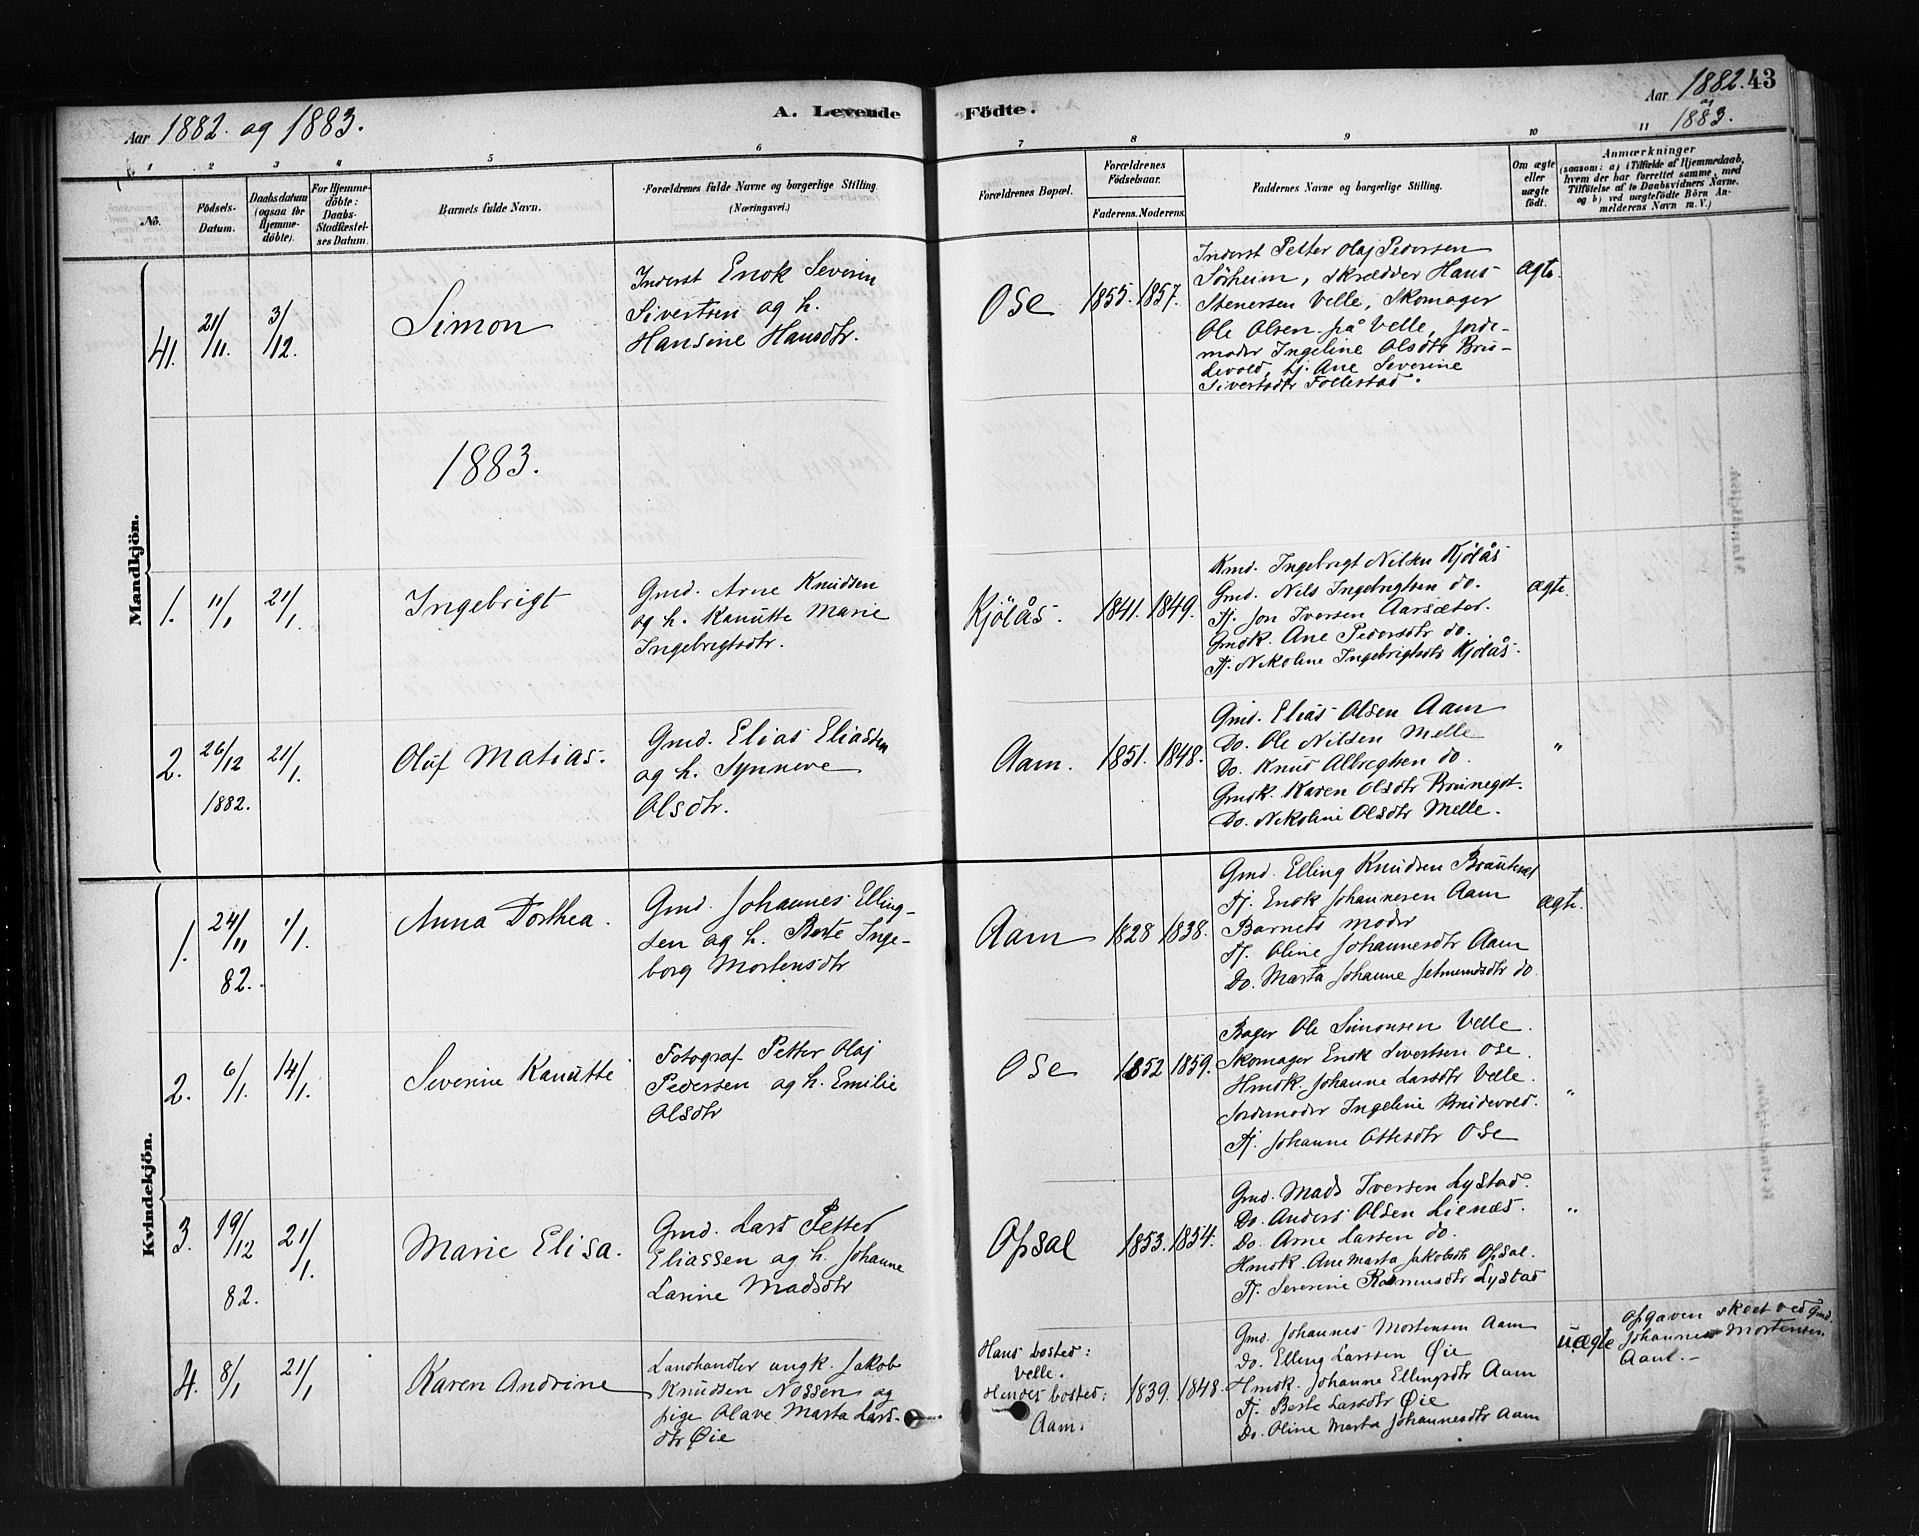 Aar 1882. og 1883.
A. Levende Födte.
Aar 1882. 43
og
1883.
1 2 3 4 5 6 7 8 9 10 11
No.
Födsels-Datum.
Daabsdatum (ogsaa for Hjemmedöbte).
For Hjemmedöbte: Daabs-Stadfæstelses Datum.
Barnets fulde Navn.
Forældrenes fulde Navne og borgerlige Stilling. (Næringsvei.)
Forældrenes Bopæl.
Forældrenes Födselsaar.
Faderens. Moderens.
Faddernes Navne og borgerlige Stilling.
Om ægte eller uægte födt.
Anmærkninger
(saasom: a) i Tilfælde af Hjemmedaab, hvem der har forrettet samme, med Tilföielse af to Daabsvidners Navne, og b) ved uægtefödte Börn Anmelderens Navn m. V.)
Mandkjön.
41. 21/11. 3/12. Simon
Inderst Enok Severin
Sivertsen og h.
Hansine Hansdtr.
Ose 1855. 1857.
Inderst Petter Olaj Pedersen
Sörheim, skrædder Hans
Stenersen Velle, Skomager
Ole Olsen på Velle, jorde-
moder Ingeline Olsdtr Bru-
devold, tj. Ane Severine
Sivertsdtr Follestad.
ægte
1883.
1. 11/1 21/1. Ingebrigt
Gmd. Arne Knudsen
og h. Kanutte Marie
Ingebrigtsdtr.
Kjölås. 1841. 1849.
Kmd. Ingebrigt Nilsen Kjölås
Gmd. Nils Ingebrigtsen do.
Tj. Jon Iversen Aarsæter.
Gmdk. Ane Pedersdtr do.
Tj. Nikoline Ingebrigtsdtr Kjölås.
ægte.
2. 26/12 1882. 21/1. Oluf Matias.
Gmd. Elias Eliassen
og h. Synneve
Olsdtr.
Aam. 1851. 1848.
Gmd. Elias Olsen Aam
Do. Ole Nilsen Melle
Do. Knud Albregtsen do.
Gmdk. Karen Olsdtr Brunegot.
Do. Nikoline Olsdtr Melle.
"
Kvindekjön.
1. 24/11 82. 1/1. Anna Dorthea.
Gmd. Johannes Elling-
sen og h. Berte Inge-
borg Mortensdtr
Aam 1828 1838.
Gmd. Elling Knudsen
Tj. Enok Johannesen Aam
Barnets moder
Tj. Oline Johannesdtr Aam
Do. Marta Johanne Jetmundsdtr do.
ægte.
2. 6/1. 14/1. Severine Kanutte
Fotograf Petter Olaj
Pedersen og h. Emilie
Olsdtr
Ose 1852 1859.
Bager Ole Simonsen Velle.
Skomager Enok Sivertsen Ose.
Hmdk. Johanne Larsdtr Velle.
Jordemoder Ingeline Brudevold.
Tj. Johanne Ottesdtr Ose
"
3. 19/12 82. 21/1. Marie Elisa.
Gmd. Lars Petter
Eliassen og h. Johanne
Larine Madsdtr
Opsal 1853. 1854.
Gmd. Mads Iversen Lystad.
Do. Anders Olsen Lienæs.
Do. Arne Larsen do.
Hmdk. Ane Marta Jakobsdtr Opsal.
Tj. Severine Rasmusdtr Lystad
"
4. 8/1 21/1 Karen Andrine
Landhandler ungk. Jakob
Knudsen Nossen og
pige Olave Marta Lars-
dtr Øie
Hans bosted:
Velle.
Hendes bosted:
Aam.
1839. 1848.
Gmd. Johannes Mortensen Aam
Do. Elling Larssen Øie
Hmdk. Johanne Ellingsdtr Aam
Tj. Berte Larsdtr Øie
Do. Oline Marta Johannesdtr Aam
uægte
Opgaven skeet ved Gmd.
Johannes Mortensen
Aam. -